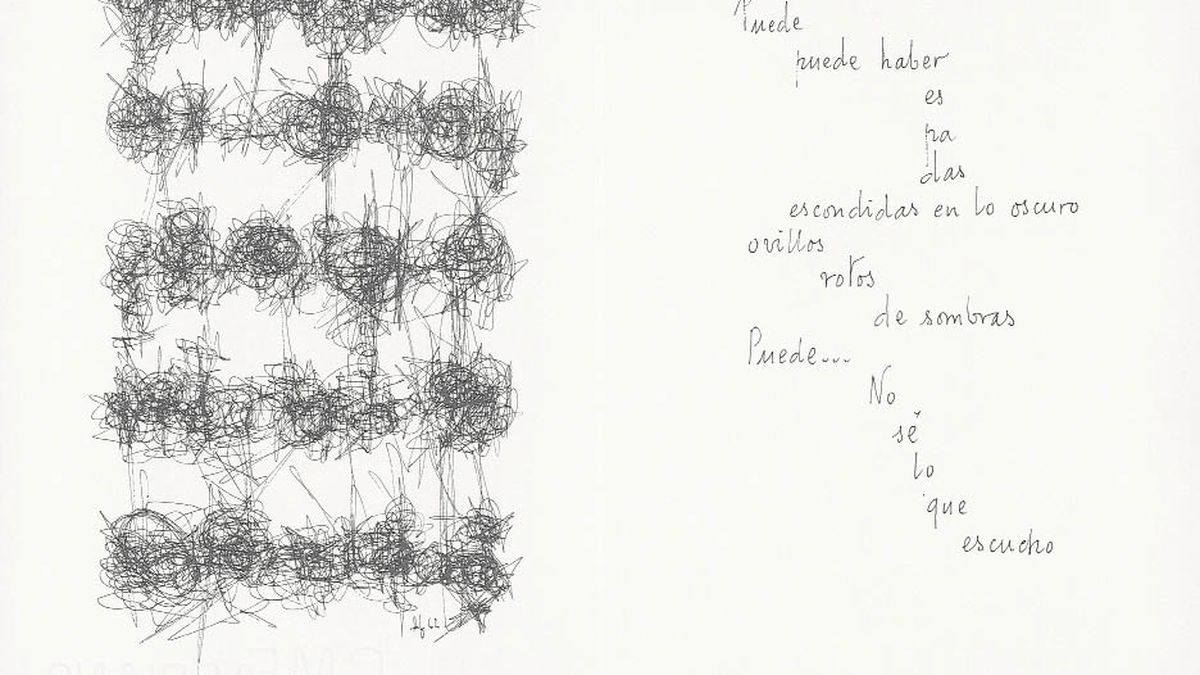 Puede
puede haber
es
pa
das
escondidas en lo oscuro
ovillos
rotos
de sombras
Puede...
No
sé
lo
que
escucho